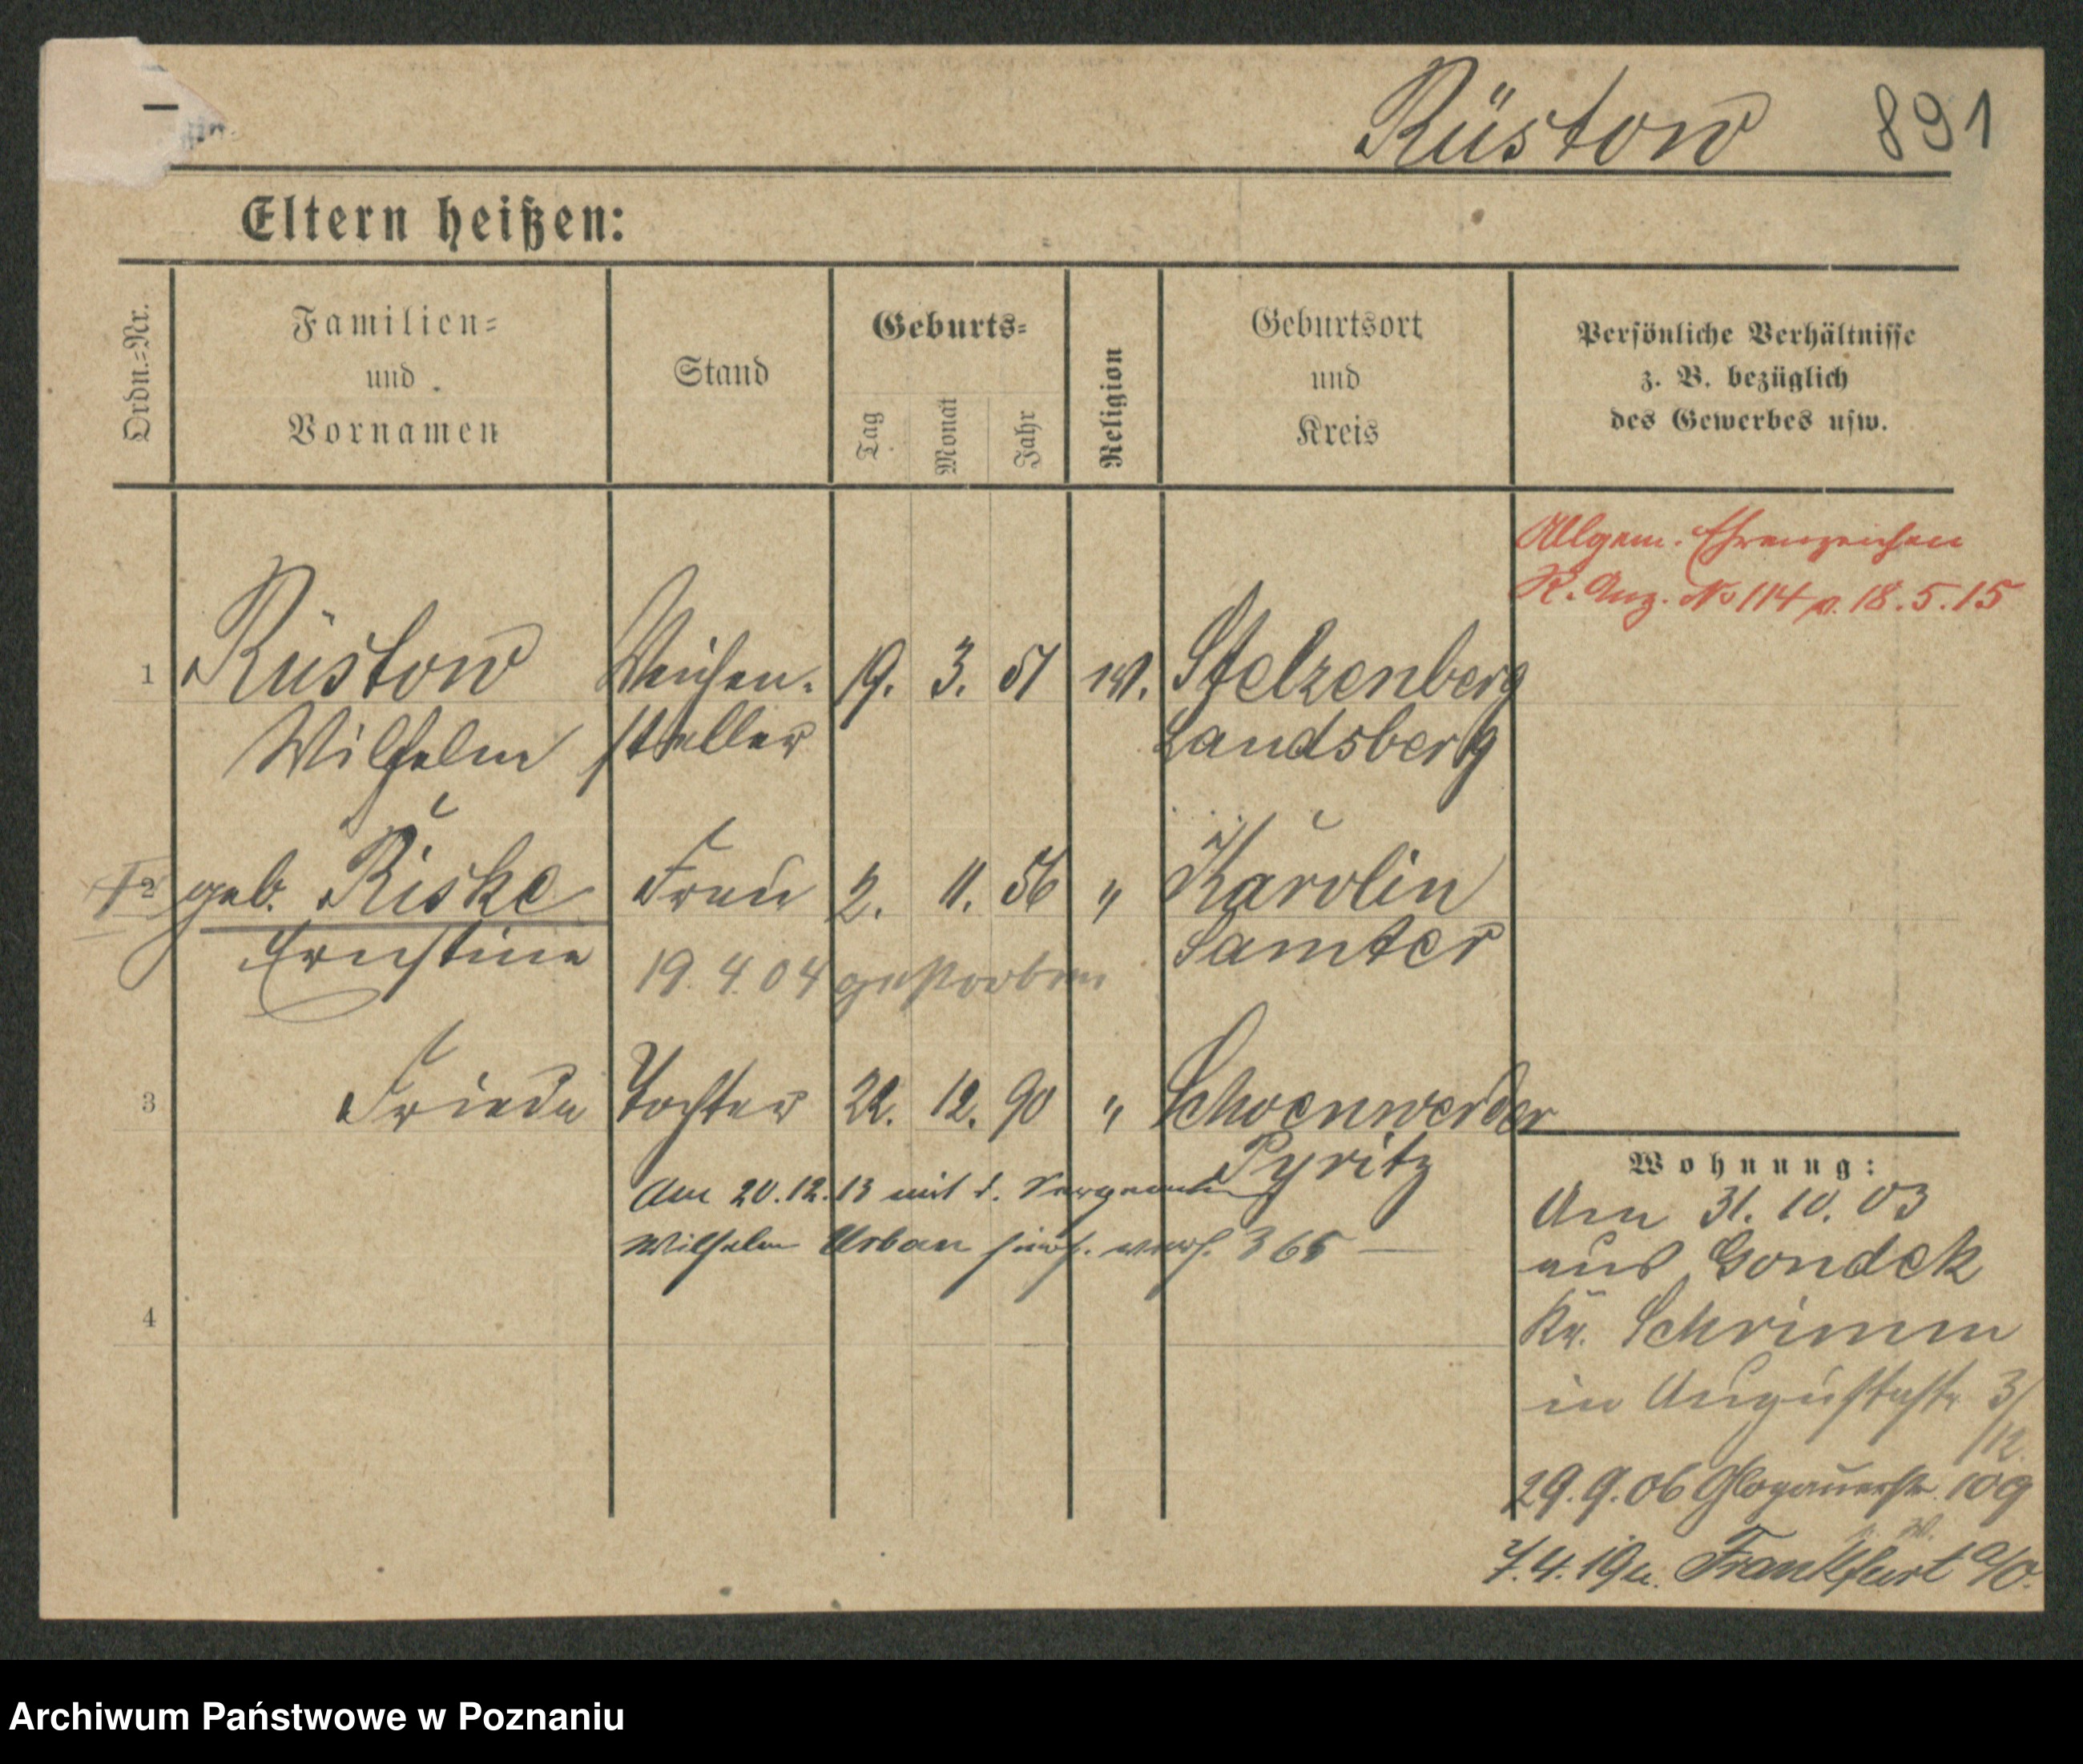 Rüstow 891
Eltern heißen:
Ordn.=Nr.
Familien=
und
Vornamen
Stand
Geburts=
Tag
Monat
Jahr
Religion
Geburtsort
und
Kreis
Persönliche Verhältnisse
z. B. bezüglich
des Gewerbes usw.
Allgem. Ehrenzeichen
R. Anz. No 114 v. 18.5.15
1 Rüstow Weichen- 19. 3. 51 ev. Stelzenberg
Wilhelm steller Landsberg
2 geb. Riske Frau 2. 11. 56 " Karolin
Ernestine Samter
19.4.04 gestorben
3 Frieda Tochter 22. 12. 90 " Schoenwerder
Pyritz
Am 20.12.13 mit d. Sergeanten
Wilhelm Urban hier verh. 365 —
4
Wohnung:
Am 31.10.03
aus Gondek
Kr. Schrimm
in Augustastr 3/
12.
29.9.06 Glogauerstr. 109
7.4.19 n. Frankfurt a/O.
Archiwum Państwowe w Poznaniu